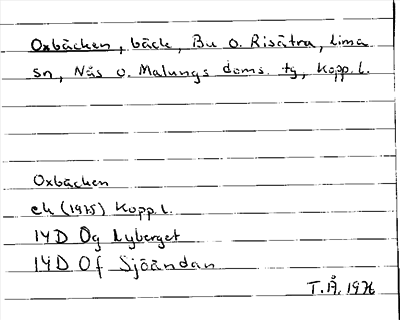 Oxbäcken, bäck, Bu o. Risätra, Lima
sn, Nås o. Malungs doms. tg, Kopp. l.
Oxbäcken
ek (1975) Kopp. l.
14D Og Nyberget
14D Of Sjöändan
T.Å. 1976